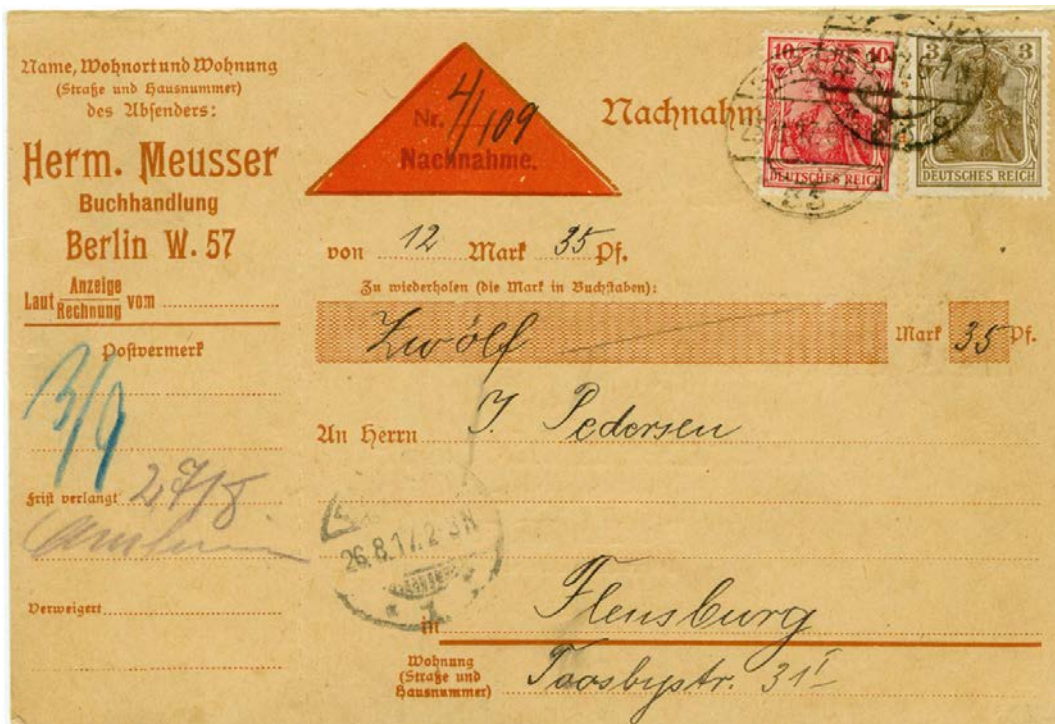 Name, Wohnort und Wohnung
(Straße und Hausnummer)
des Absenders:
Herm. Meusser
Buchhandlung
Berlin W. 57
Laut Anzeige
Rechnung vom
Postvermerk
3/9
Frist verlangt 27/8
Verweigert
Nr. 4/109
Nachnahme.
Nachnahm
10 10
DEUTSCHES REICH
3 3
DEUTSCHES REICH
35
von 12 Mark 35 Pf.
Zu wiederholen (die Mark in Buchstaben):
Zwölf Mark 35 Pf.
An Herrn J. Pedersen
26.8.17. 2-3N
1
in Flensburg
Wohnung
(Straße und
Hausnummer)
Toosbystr. 31 I